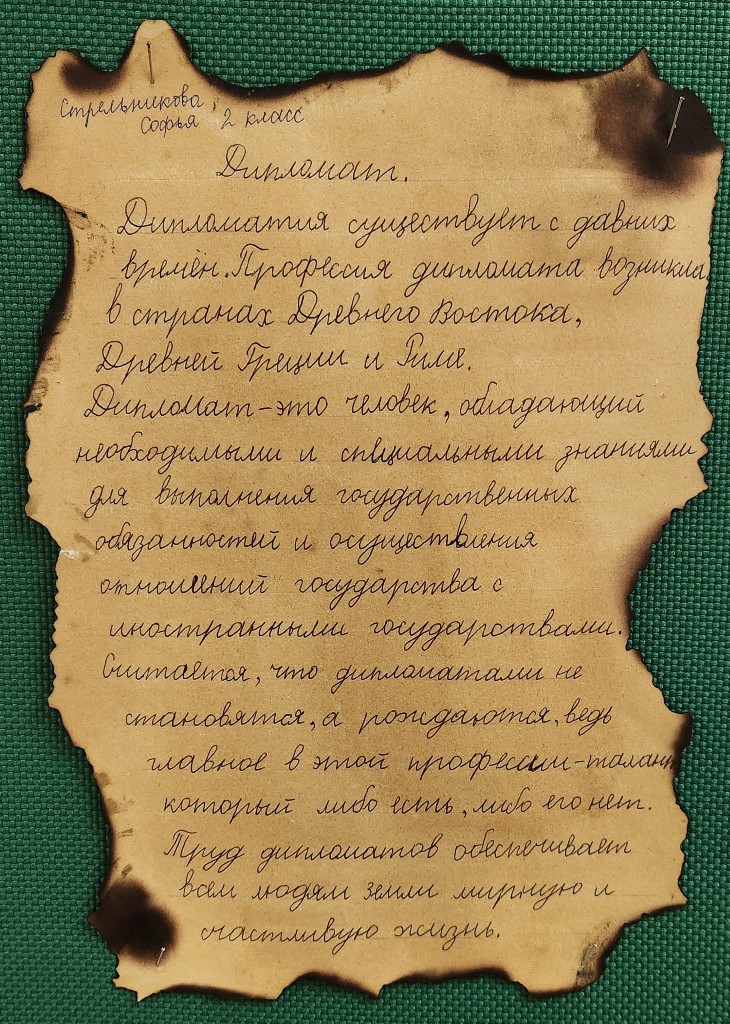 Стрельникова
Софья 2 класс
Дипломат.
Дипломатия существует с давних
времён. Профессия дипломата возникла
в странах Древнего Востока,
Древней Греции и Риме.
Дипломат - это человек, обладающий
необходимыми и специальными знаниями
для выполнения государственных
обязанностей и осуществления
отношений государства с
иностранными государствами.
Считается, что дипломатами не
становятся, а рождаются, ведь
главное в этой профессии - талант
который либо есть, либо его нет.
Труд дипломатов обеспечивает
всем людям Земли мирную и
счастливую жизнь.